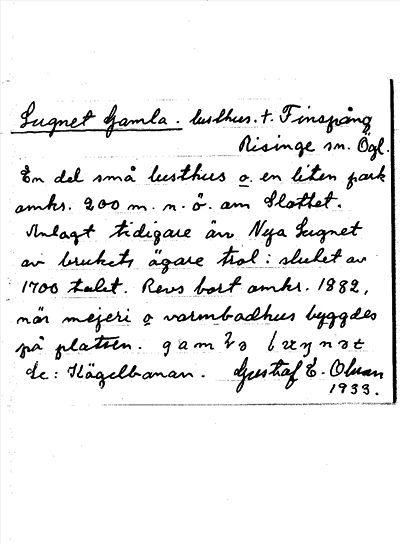 Lugnet Gamla. lusthus. t. Finspång
Risinge sn. Ögl.
En del små lusthus o. en liten park
omkr. 200 m. n. ö. om Slottet.
Anlagt tidigare än Nya Lugnet
av brukets ägare trol: slutet av
1700 talet. Revs bort omkr. 1882,
när mejeri o varmbadhus byggdes
på platsen. gamla
de: Kägelbanan. Gustaf E. Olsson
1933.